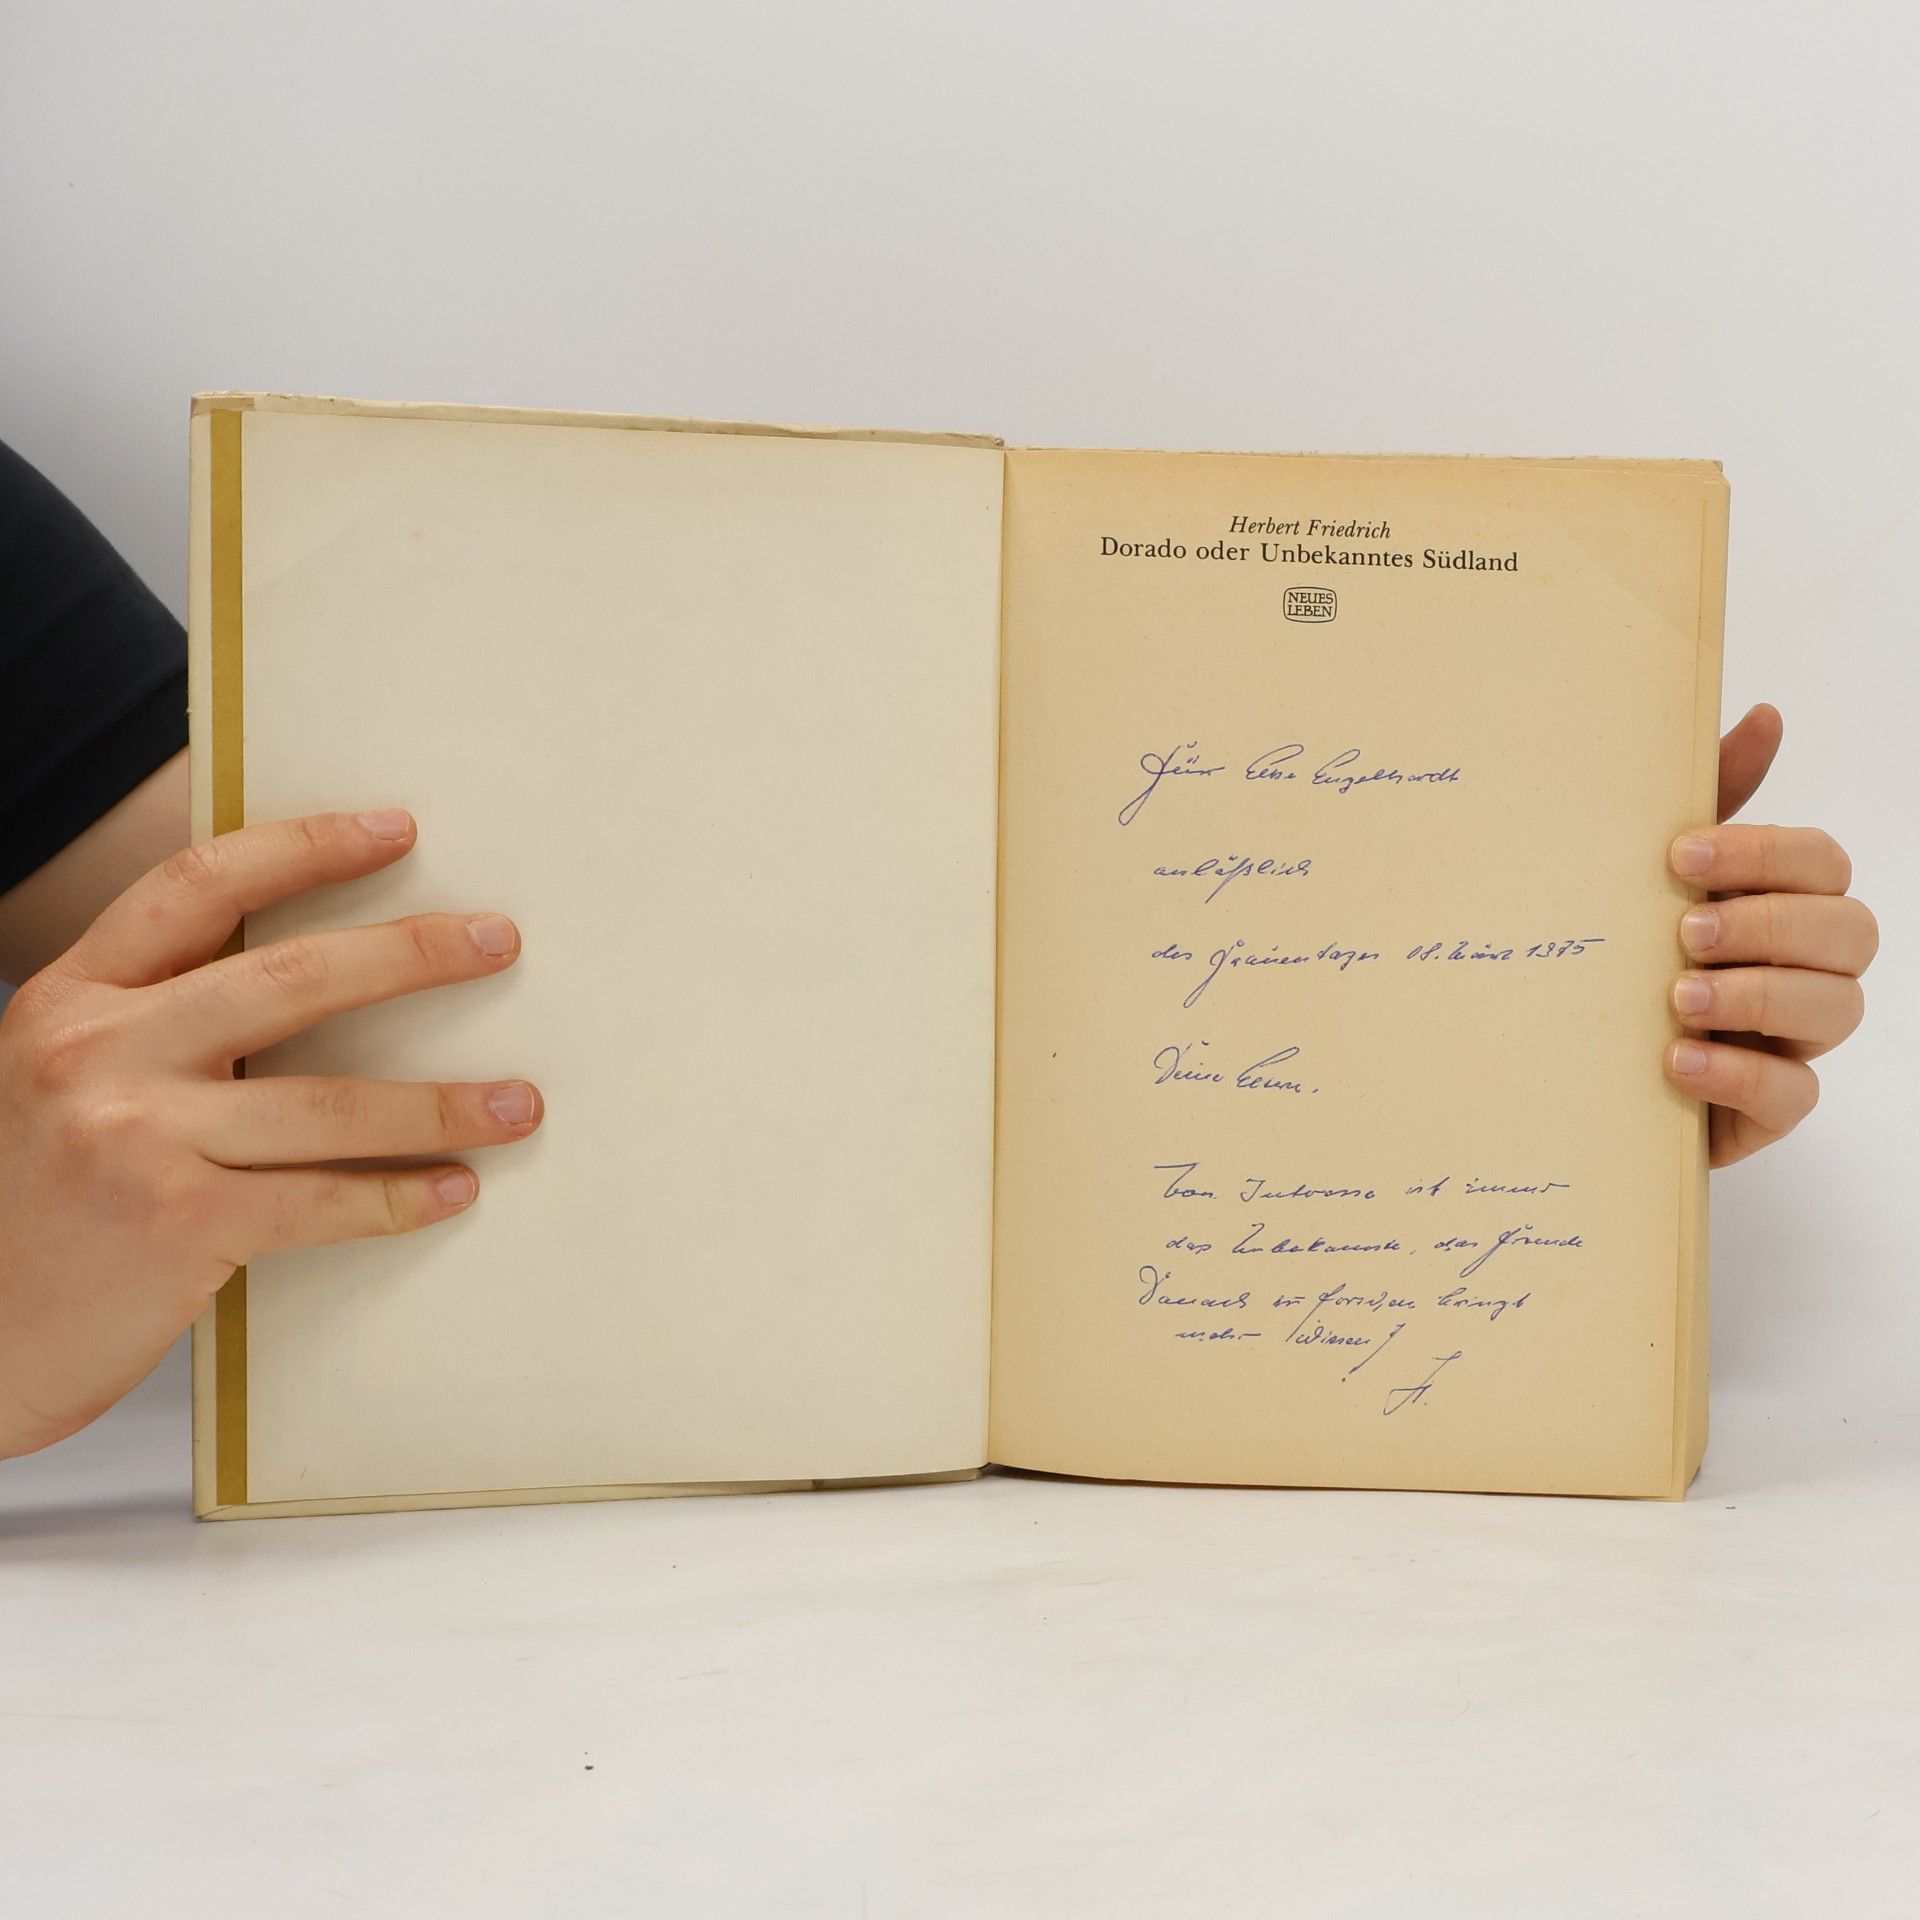 Herbert Friedrich
Dorado oder Unbekanntes Südland
NEUES
LEBEN
Für Elke Engelhardt
anläßlich
des Frauentages 08. März 1975
Deine Eltern.
Von Interesse ist immer
das Unbekannte, das Fremde
Danach zu forschen bringt
mehr Wissen!